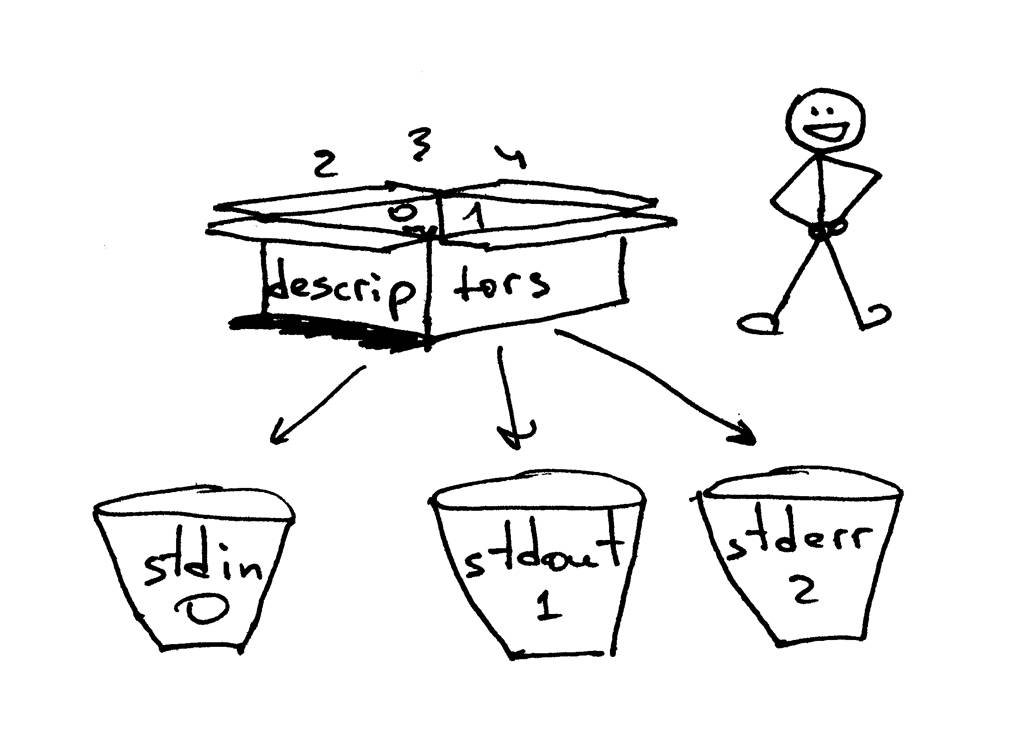 2 3 4
0 1
descriptors
stdin
0
stdout
1
stderr
2